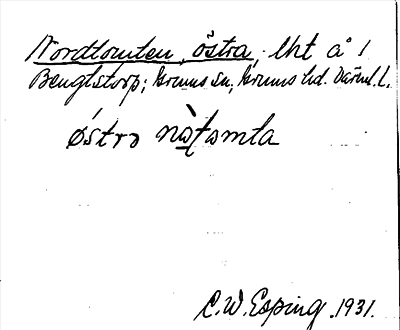 Nordtomten, östra, lht å 1
Bengtstorp; Grums sn, Grums hd. Värml. l.
östrə nàṭamta
C.W. Esping. 1931.